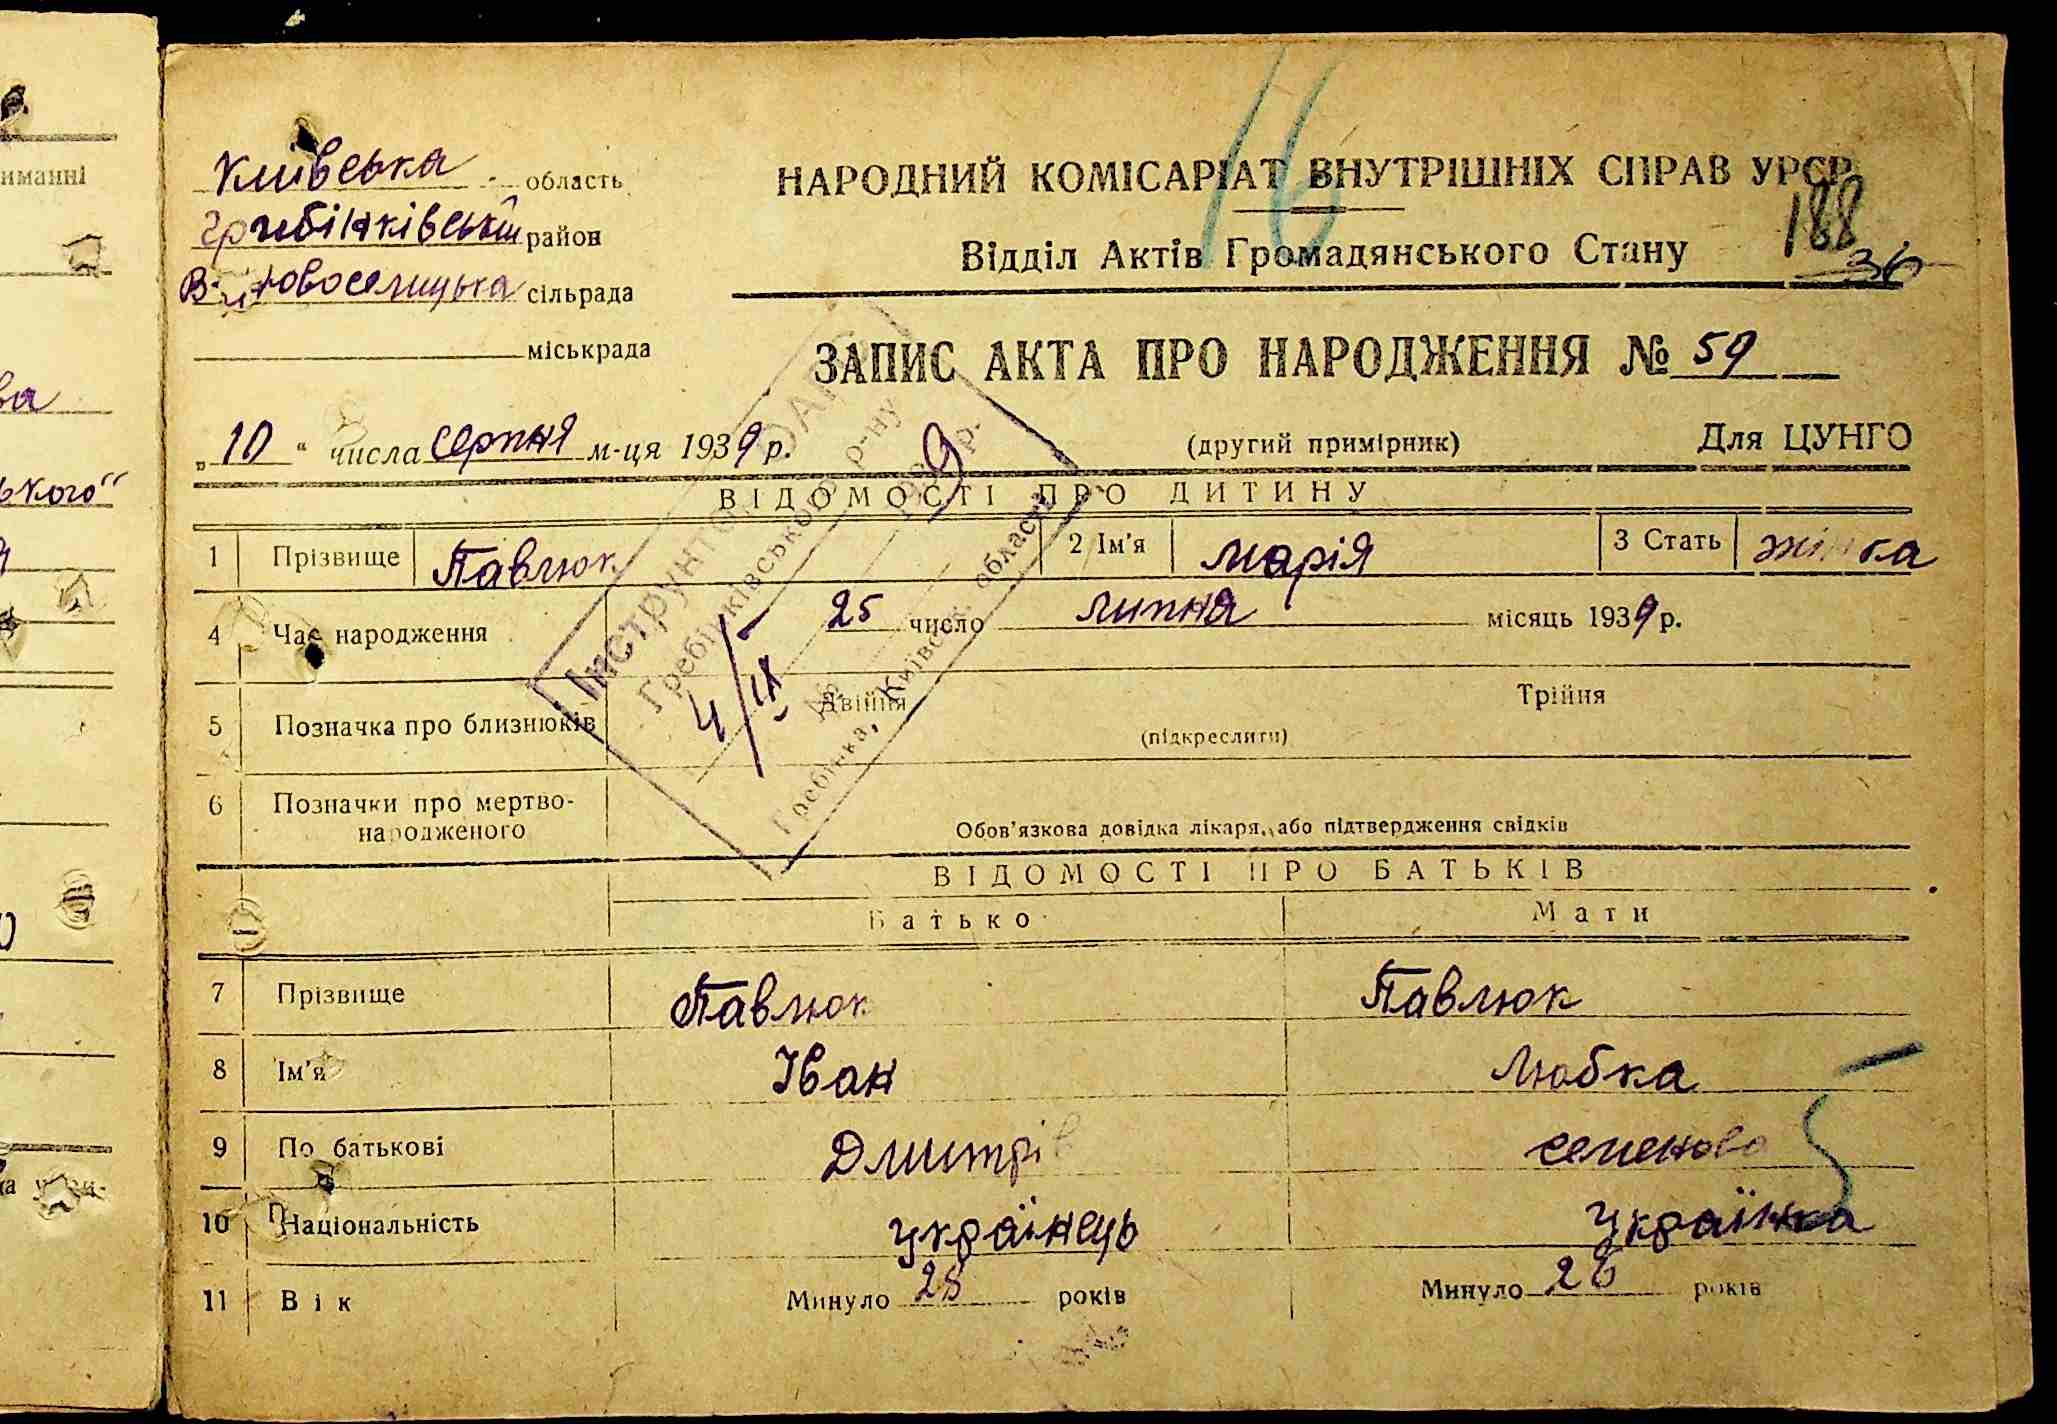 иманні
ва
ького"
Київська область
Гребінківський район
В-Новоселицька сільрада
міськрада
16
НАРОДНИЙ КОМІСАРІАТ ВНУТРІШНІХ СПРАВ УРСР
188
Відділ Актів Громадянського Стану
36
ЗАПИС АКТА ПРО НАРОДЖЕННЯ № 59
„10" числа серпня м-ця 1939 р.
(другий примірник)
Для ЦУНГО
ВІДОМОСТІ ПРО ДИТИНУ
1 Прізвище Павлюк 2 Ім'я Марія 3 Стать жінка
4 Час народження 25 число липня місяць 1939 р.
5 Позначка про близнюків Двійня Трійня
(підкреслити)
6 Позначки про мертво-
народженого
Обов'язкова довідка лікаря, або підтвердження свідків
Гребінківського р-ну
4/IX 9 р.
№
Гребінка, Київськ. області
ВІДОМОСТІ ПРО БАТЬКІВ
Батько Мати
7 Прізвище Павлюк Павлюк
8 Ім'я Іван Любка
9 По батькові Дмитрів семенова
10 Національність українець українка
11 Вік Минуло 28 років Минуло 26 років